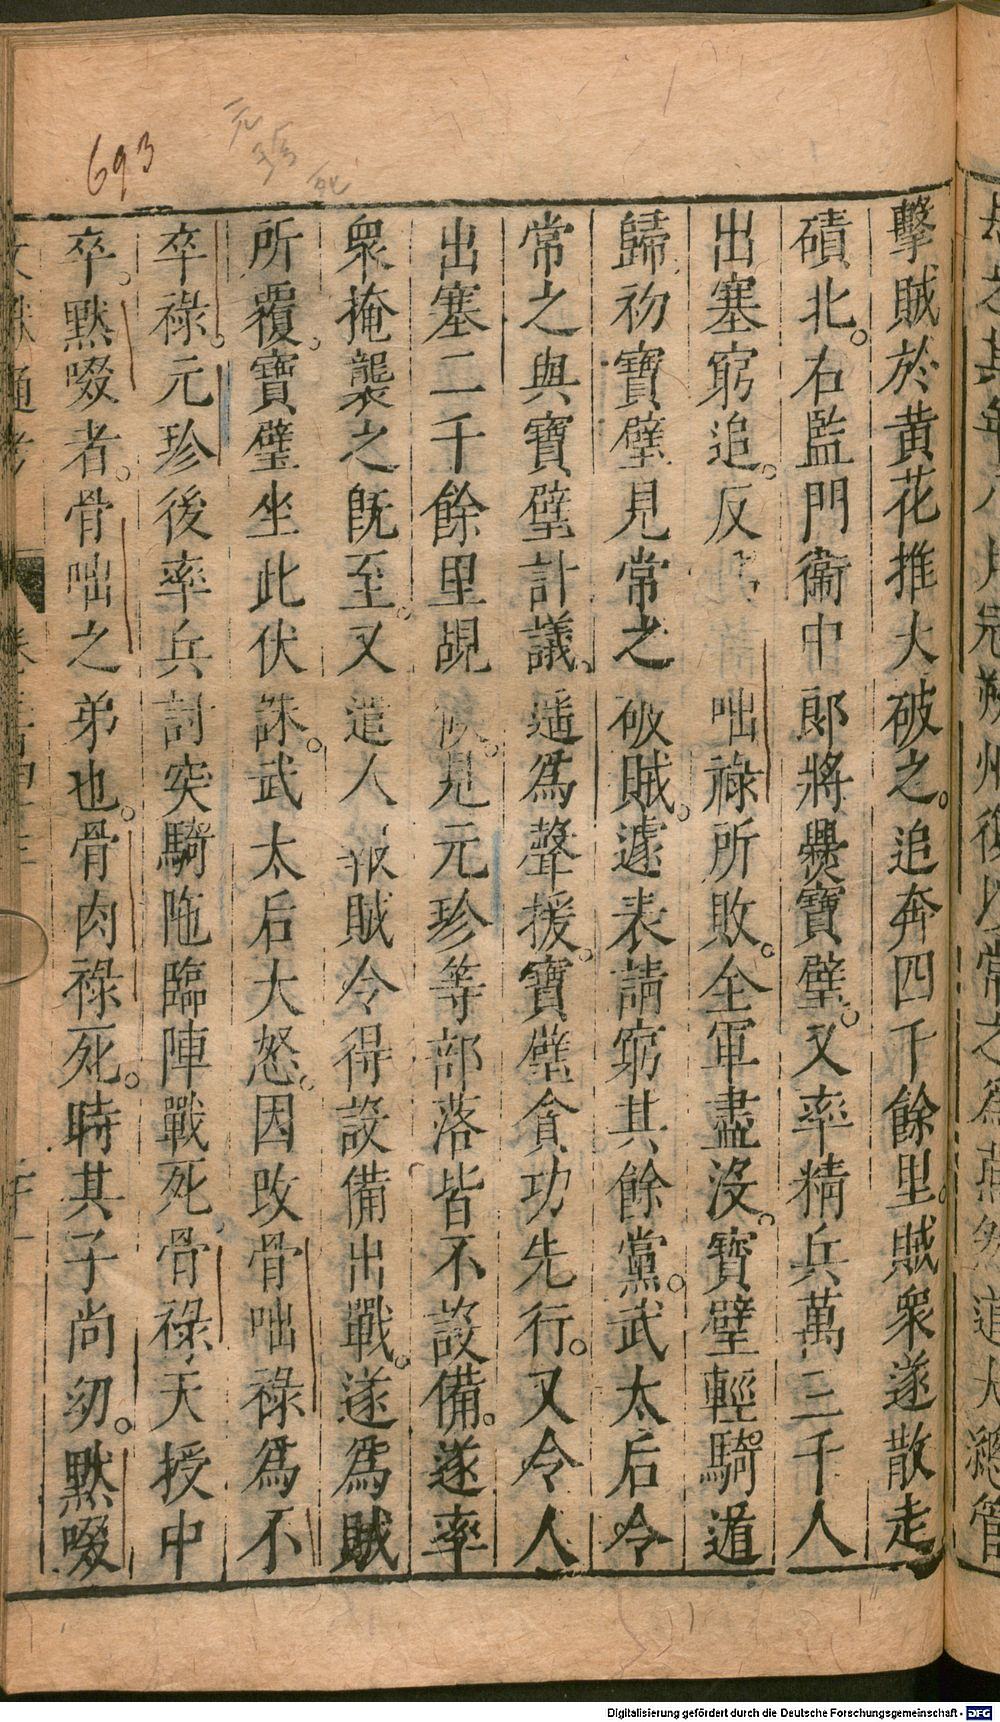 693
元
珍
死
擊賊於黃花推大破之追奔四千餘里賊衆遂散走
磧北右監門衞中郎將爨寶璧又率精兵萬三千人
出塞窮追反 咄祿所敗全軍盡沒寶璧輕騎遁
歸初寶璧見常之破賊遽表請窮其餘黨武太后令
常之與寶璧計議遥爲聲援寶璧貪功先行又令人
出塞二千餘里覘候見元珍等部落皆不設備遂率
衆掩襲之旣至又遣人報賊令得設備出戰遂爲賊
所覆寶璧坐此伏誅武太后大怒因改骨咄祿爲不
卒祿元珍後率兵討突騎施臨陣戰死骨祿天授中
卒默啜者骨咄之弟也骨肉祿死時其子尚幼默啜
文獻通考 卷三百四十三
Digitalisierung gefördert durch die Deutsche Forschungsgemeinschaft - DFG